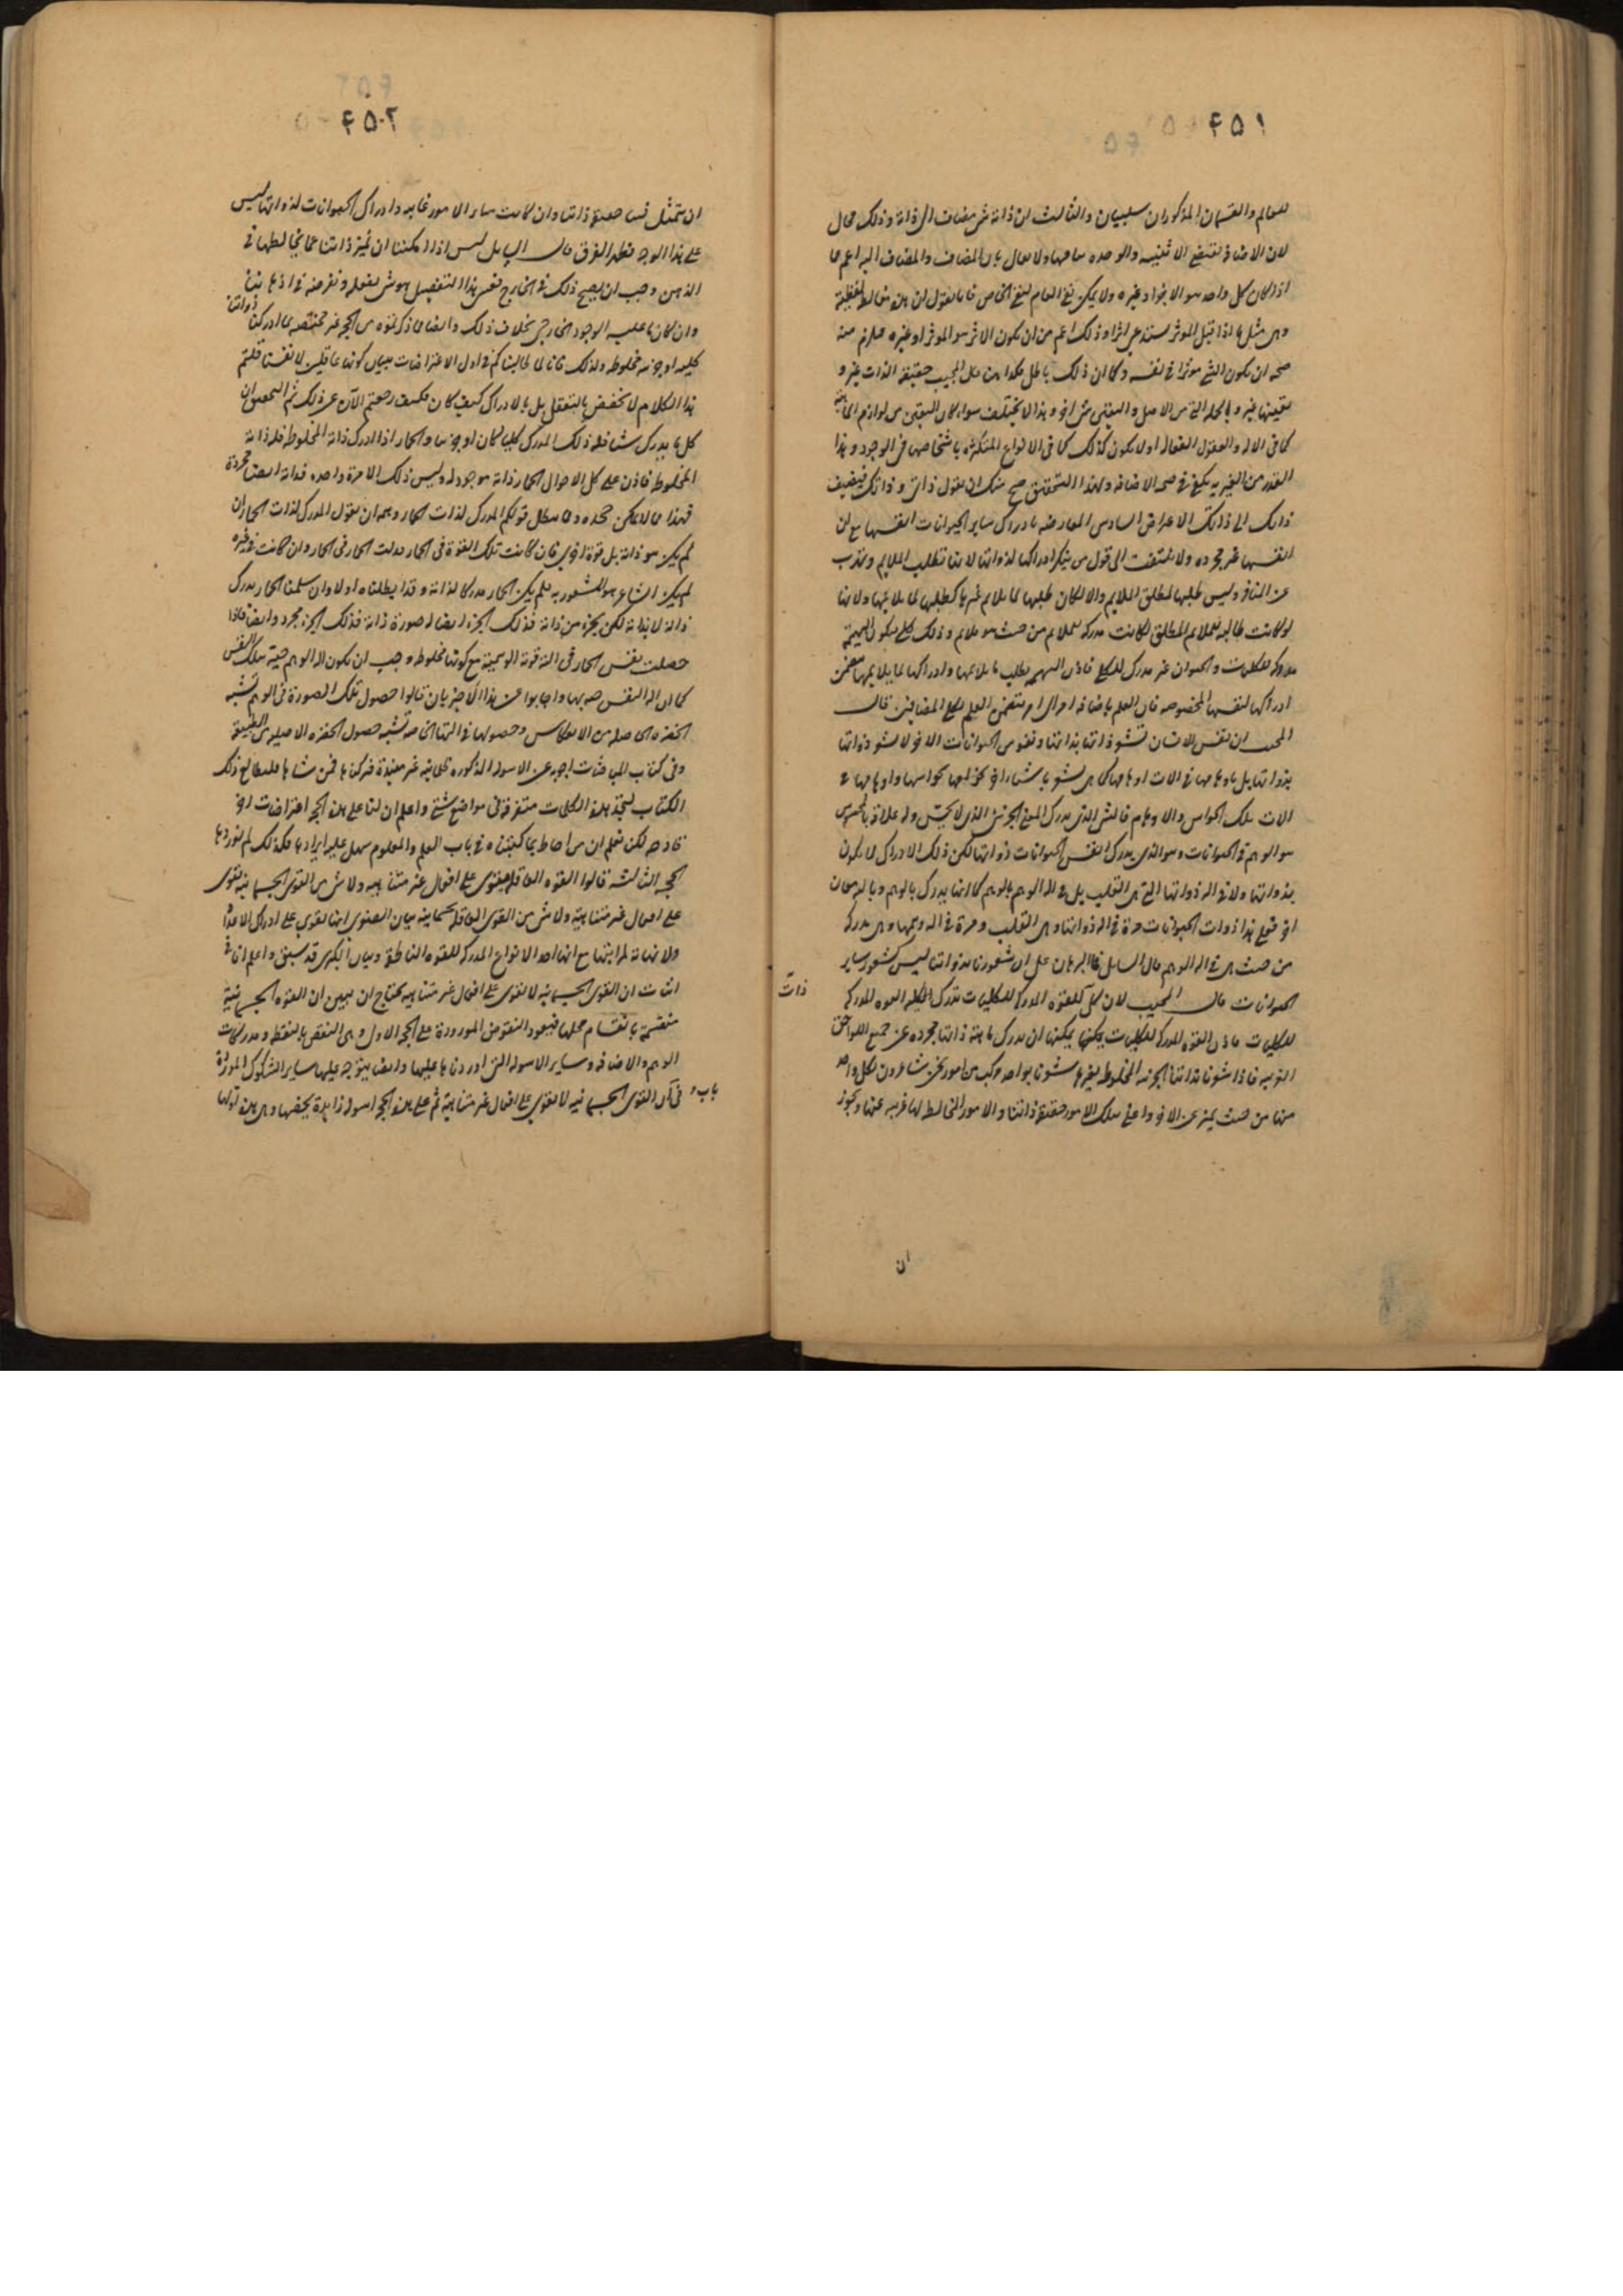 ٤٥١
للعالم والقسمان المذكوران سلبيان والثالث ان ذاته شى مضاف الى ذاته وذلك محال
لان الاضافة تقتضى الاثنينيه والوحده تنافيها ولا يقال بان المضاف والمضاف اليه اعم مما
اذا كان كل واحد هو الاخر او غيره ولا يمكن نفى العام لنفى الخاص فانا نقول ان هذه مغالطة لفظية
وهى مثل ما اذا قيل الموثر يستدعى اثرا وذلك اعم من ان يكون الاثر هو الموثر او غيره فيلزم منه
صحه ان يكون الشى موثرا فى نفسه وكما ان ذلك باطل فكذا هذا قال المجيب حقيقة الذات غير و
تعينها غير وبالجمله التى من الاصل والتعين شى اخر وهذا لا يختلف سواء كان التعين من لوازم الماهية
كما فى الاله والعقول الفعاله او لا يكون كذلك كما فى الانواع المتكثره باشخاصها فى الوجود وهذا
القدر من الغيريه يكفى فى صحه الاضافه ولهذا التحقيق صح منك ان تقول ذاتى وذاتك فتضيف
ذاتك الى ذاتك الاعتراض السادس المعارضه بادراك ساير الحيوانات انفسها مع ان
انفسها غير مجرده ولا يلتفت الى قول من ينكر ادراكها لذواتها لانها تطلب الملايم وتهرب
عن المنافر وليس طلبها لمطلق الملايم والا لكان طلبها لما يلايم غيرها كطلبها لما يلايمها ولانها
لو كانت طالبه للملايم المطلق لكانت مدركه للملايم من حيث هو ملايم وذلك كلى فيكون البهيمة
مدركه للكليات والحيوان غير مدرك للكلى فاذن البهيمه تطلب ما يلايمها وادراكها لما يلايمها يتضمن
ادراكها لنفسها المخصوصه فان العلم باضافة امر الى امر يتضمن العلم بكلى المضافين قال
المجيب ان نفس الانسان تشعر ذاتها بذاتها ونفوس الحيوانات الاخر لا تشعر ذواتها
بذواتها بل باوهامها فى الات اوهامها كما تشعر باشياء اخر بحواسها واوهامها فى
الات تلك الحواس والاوهام فالشى الذى يدرك المعنى الجزئى الذى لا يحس وله علاقة بالمحسوس
هو الوهم فى الحيوانات وهو الذى يدرك انفس الحيوانات ذواتها لكن ذلك الادراك لا يكون
بذواتها ولا فى اله ذواتها التى هى القلب بل فى اله الوهم بالوهم كما انها يدرك بالوهم وبالته معان
اخر فعلى هذا ذوات الحيوانات مرة فى اله ذواتها وهى القلب ومرة فى اله وهمها وهى مدركه
من حيث هى فى اله الوهم قال السايل فما البرهان على ان شعورنا بذواتنا ليس كشعور ساير
الحيوانات قال المجيب لان القوه المدركه للكليات تدرك الكليه القوه المدركه
ذات
للكليات فاذن القوه المدركه للكليات يمكنها ان تدرك ماهية ذاتها مجرده عن جميع اللواحق
الغريبه فاذا شعرنا بذاتنا الجزئيه المخلوطه بغيرها شعرنا بواحد مركب من امور نحن شاعرون بكل واحد
منها من حيث يتميز عن الاخر واعنى بتلك الامور حقيقة ذاتنا والامور المخالطه لها غريبه عنها ويجوز
ان
٤٥٢
ان يتمثل فينا حقيقة ذاتنا وان كانت ساير الامور غايبه وادراك الحيوانات لذواتها ليس
على هذا الوجه فظهر الفرق قال السايل ليس اذا امكننا ان نميز ذاتنا عما يخالطها فى
الذهن وجب ان يصح ذلك فى الخارج فنفس هذا التفصيل هو شى نفعله ونفرضه فى اذهاننا
وان كان ما عليه الوجود الخارجى بخلاف ذلك وايضا فما ذكرتموه من الحجه غير مختصه بما ادركنا ذواتنا
كليه او جزئيه مخلوطه ولذلك فانا لما طالبناكم فى اول الاعتراضات ببيان كوننا عاقلين لانفسنا قلتم
هذا الكلام لا يختص بالتعقل بل بالادراك كيف كان فكيف رجعتم الان عن ذلك ثم التحقيق ان
كل ما يدرك شيئا فله ذلك المدرك كليا كان او جزئيا والحمار اذا ادرك ذاته المخلوطه فله ذاته
المخلوطه فاذن على كل الاحوال الحمار ذاته موجوده له وليس ذلك الا مرة واحده فذاته ايضا مجردة
فهذا مما لا يمكن جحده ومما يبطل قولكم المدرك لذات الحمار وهمه ان نقول المدرك لذات الحمار ان
لم يكن هو ذاته بل قوة اخرى فان كانت تلك القوة فى الحمار فذات الحمار فى الحمار وان كانت فى غيره
لم يكن الشاعر هو المشعور به فلم يكن الحمار مدركا لذاته وقد ابطلناه اولا وان سلمنا الحمار يدرك
ذاته لا بذاته لكن بجزء من ذاته فذلك الجزء ايضا له صورة ذاته فذلك الجزء مجرد وايضا فاذا
حصلت نفس الحمار فى اله قوته الوهمية مع كونها مخلوطه وجب ان يكون اله الوهم حية بتلك النفس
كما ان اله النفس حيه بها واجابوا عن هذا الاخير بان قالوا حصول تلك الصورة فى الوهم تشبه
الخضره الحاصله من الانعكاس وحصولها فى التها الخاصه تشبه حصول الخضره الاصليه من الطبيعة
وفى كتاب المباحثات اجوبه عن الاسوله المذكوره ثمانيه غير مفيدة فتركناها فمن شاءها فليطالع ذلك
الكتاب ليجد هذه الكلمات متفرقة فى مواضع شتى واعلم ان لنا على هذه الحجه اعتراضات اخر
قادحه لكن نعلم ان من احاط بما كتبناه فى باب العلم والمعلوم سهل عليه ايرادها فكذلك لم نوردها
الحجه الثالثه قالوا القوه العاقله تقوى على افعال غير متناهيه ولا شى من القوى الجسمانيه يقوى
على افعال غير متناهية فلا شى من القوى العاقله بجسمانيه بيان الصغرى انها تقوى على ادراك الاعداد
ولا نهاية لمراتبها مع انها احد الانواع المدركه للقوه الناطقه وبيان الكبرى قد سبق واعلم ان فى
اثبات ان القوى الجسمانيه لا تقوى على افعال غير متناهيه يحتاج ان نبين ان القوه الجسمانية
منقسمة بانقسام محلها فيعود النقوض الموردة على الحجه الاولى وهى النقض بالنقطه ومدركات
الوهم والاضافه وساير الاسوله التى اوردناها عليها وايضا يتوجه عليها ساير الشكوك الموردة
باب
فى ان القوى الجسمانيه لا تقوى على افعال غير متناهية ثم على هذه الحجه اسوله زايدة يخصها وهى هذه اولها